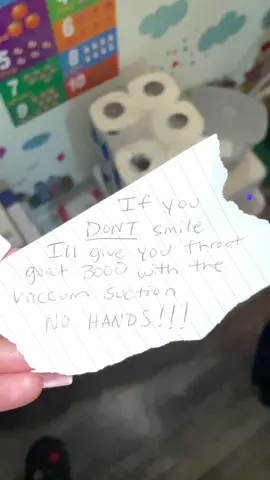 If you
DONT smile
I'll give you throat
goat 3000 with the
vaccum suction
NO HANDS!!!
7
8
9
10